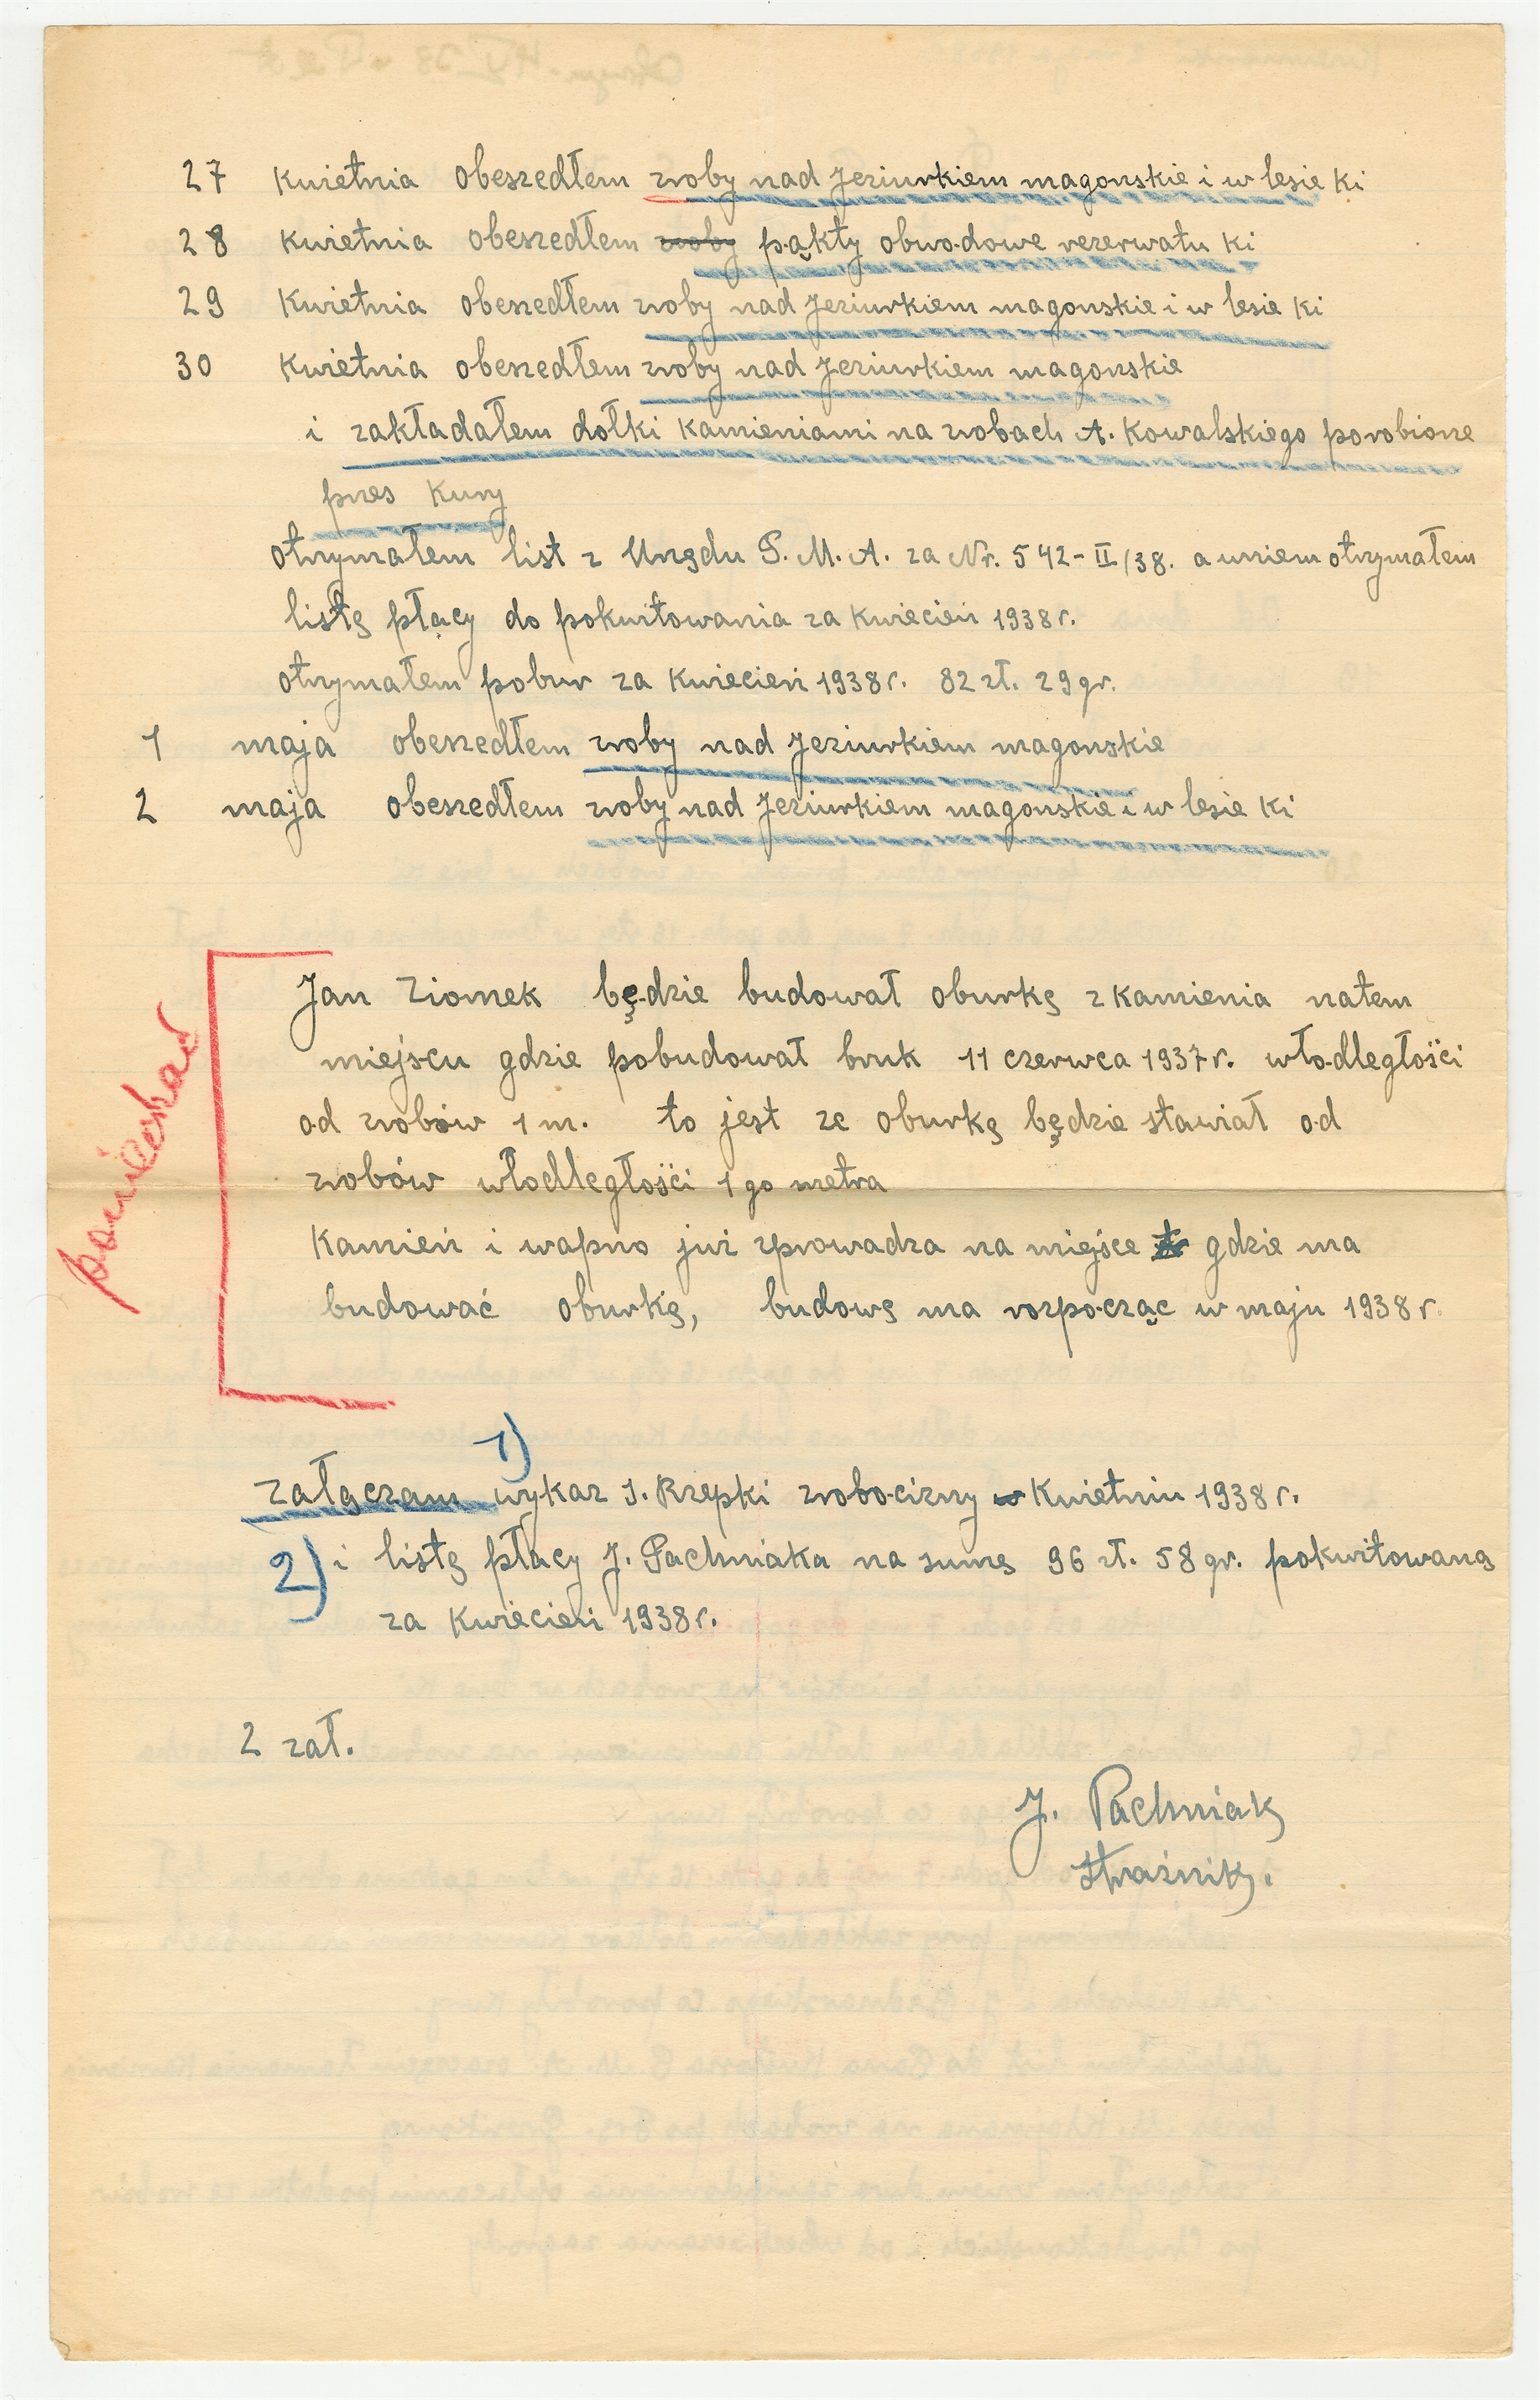 27 Kwietnia obeszedłem zroby nad Jeziurkiem magonskie i w lesie Ki
28 Kwietnia obeszedłem zroby pąkty obwodowe rezerwatu Ki
29 Kwietnia obeszedłem zroby nad Jeziurkiem magonskie i w lesie Ki
30 Kwietnia obeszedłem zroby nad Jeziurkiem magonskie
i zakładałem dołki Kamieniami na zrobach A. Kowalskiego porobione
przes Kury
otrzymałem list z Urzędu P. M. A. za Nr. 542-II/38. a wniem otrzymałem
listę płacy do pokwitowania za Kwiecień 1938 r.
otrzymałem pobur za Kwiecień 1938 r. 82 zł. 29 gr.
1 maja obeszedłem zroby nad Jeziurkiem magonskie
2 maja obeszedłem zroby nad Jeziurkiem magonskie i w lesie Ki
Jan Ziomek będzie budował oburkę z Kamienia natem
miejscu gdzie pobudował bruk 11 czerwca 1937 r. włodległości
od zrobów 1 m. to jest ze oburkę będzie stawiał od
zrobów włodległości 1 go metra
Kamień i wapno już zprowadza na miejsce gdzie ma
budować oburkę, budowę ma rozpocząc w maju 1938 r.
1)
załączam wykaz J. Rzepki zrobocizny w Kwietniu 1938 r.
2) i listę płacy J. Pachniaka na sumę 96 zł. 58 gr. pokwitowaną
za Kwiecień 1938 r.
2 zał.
J. Pachniak
Strażnik.